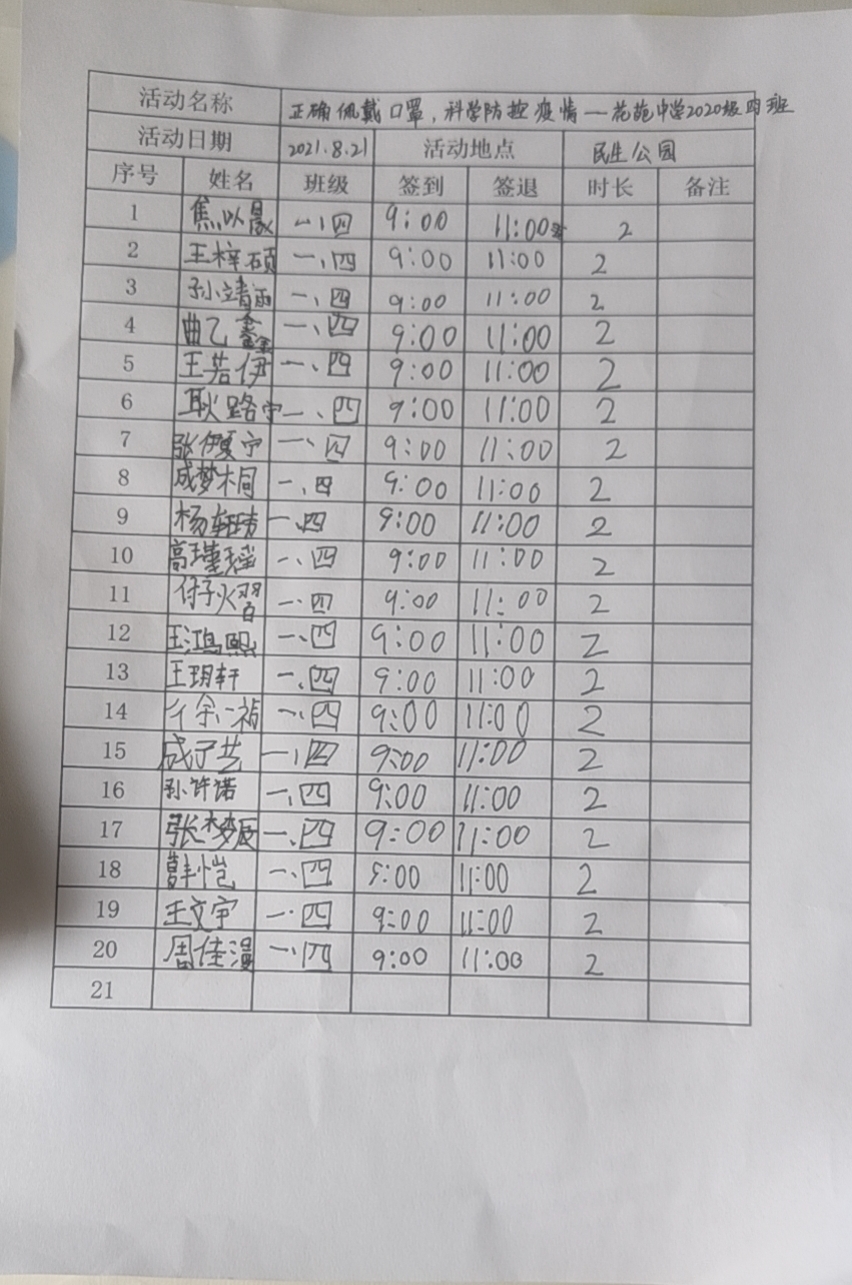 活动名称 正确佩戴口罩,科学防控疫情—花苑中学2020级四班
活动日期 2021.8.21 活动地点 民生公园
序号 姓名 班级 签到 签退 时长 备注
1 焦以晟 一、四 9:00 11:00 2
2 王梓硕 一、四 9:00 11:00 2
3 孙靖涵 一、四 9:00 11:00 2
4 曲乙鑫 一、四 9:00 11:00 2
5 王若伊 一、四 9:00 11:00 2
6 耿路宁 一、四 9:00 11:00 2
7 张伊夏宁 一、四 9:00 11:00 2
8 成梦桐 一、四 9:00 11:00 2
9 杨轩琦 一、四 9:00 11:00 2
10 高瑾瑶 一、四 9:00 11:00 2
11 付子熠 一、四 9:00 11:00 2
12 王鸿熙 一、四 9:00 11:00 2
13 王玥轩 一、四 9:00 11:00 2
14 一、四 9:00 11:00 2
15 成子芸 一、四 9:00 11:00 2
16 孙许诺 一、四 9:00 11:00 2
17 张梦辰 一、四 9:00 11:00 2
18 韩恺 一、四 9:00 11:00 2
19 王文宇 一、四 9:00 11:00 2
20 周佳漫 一、四 9:00 11:00 2
21